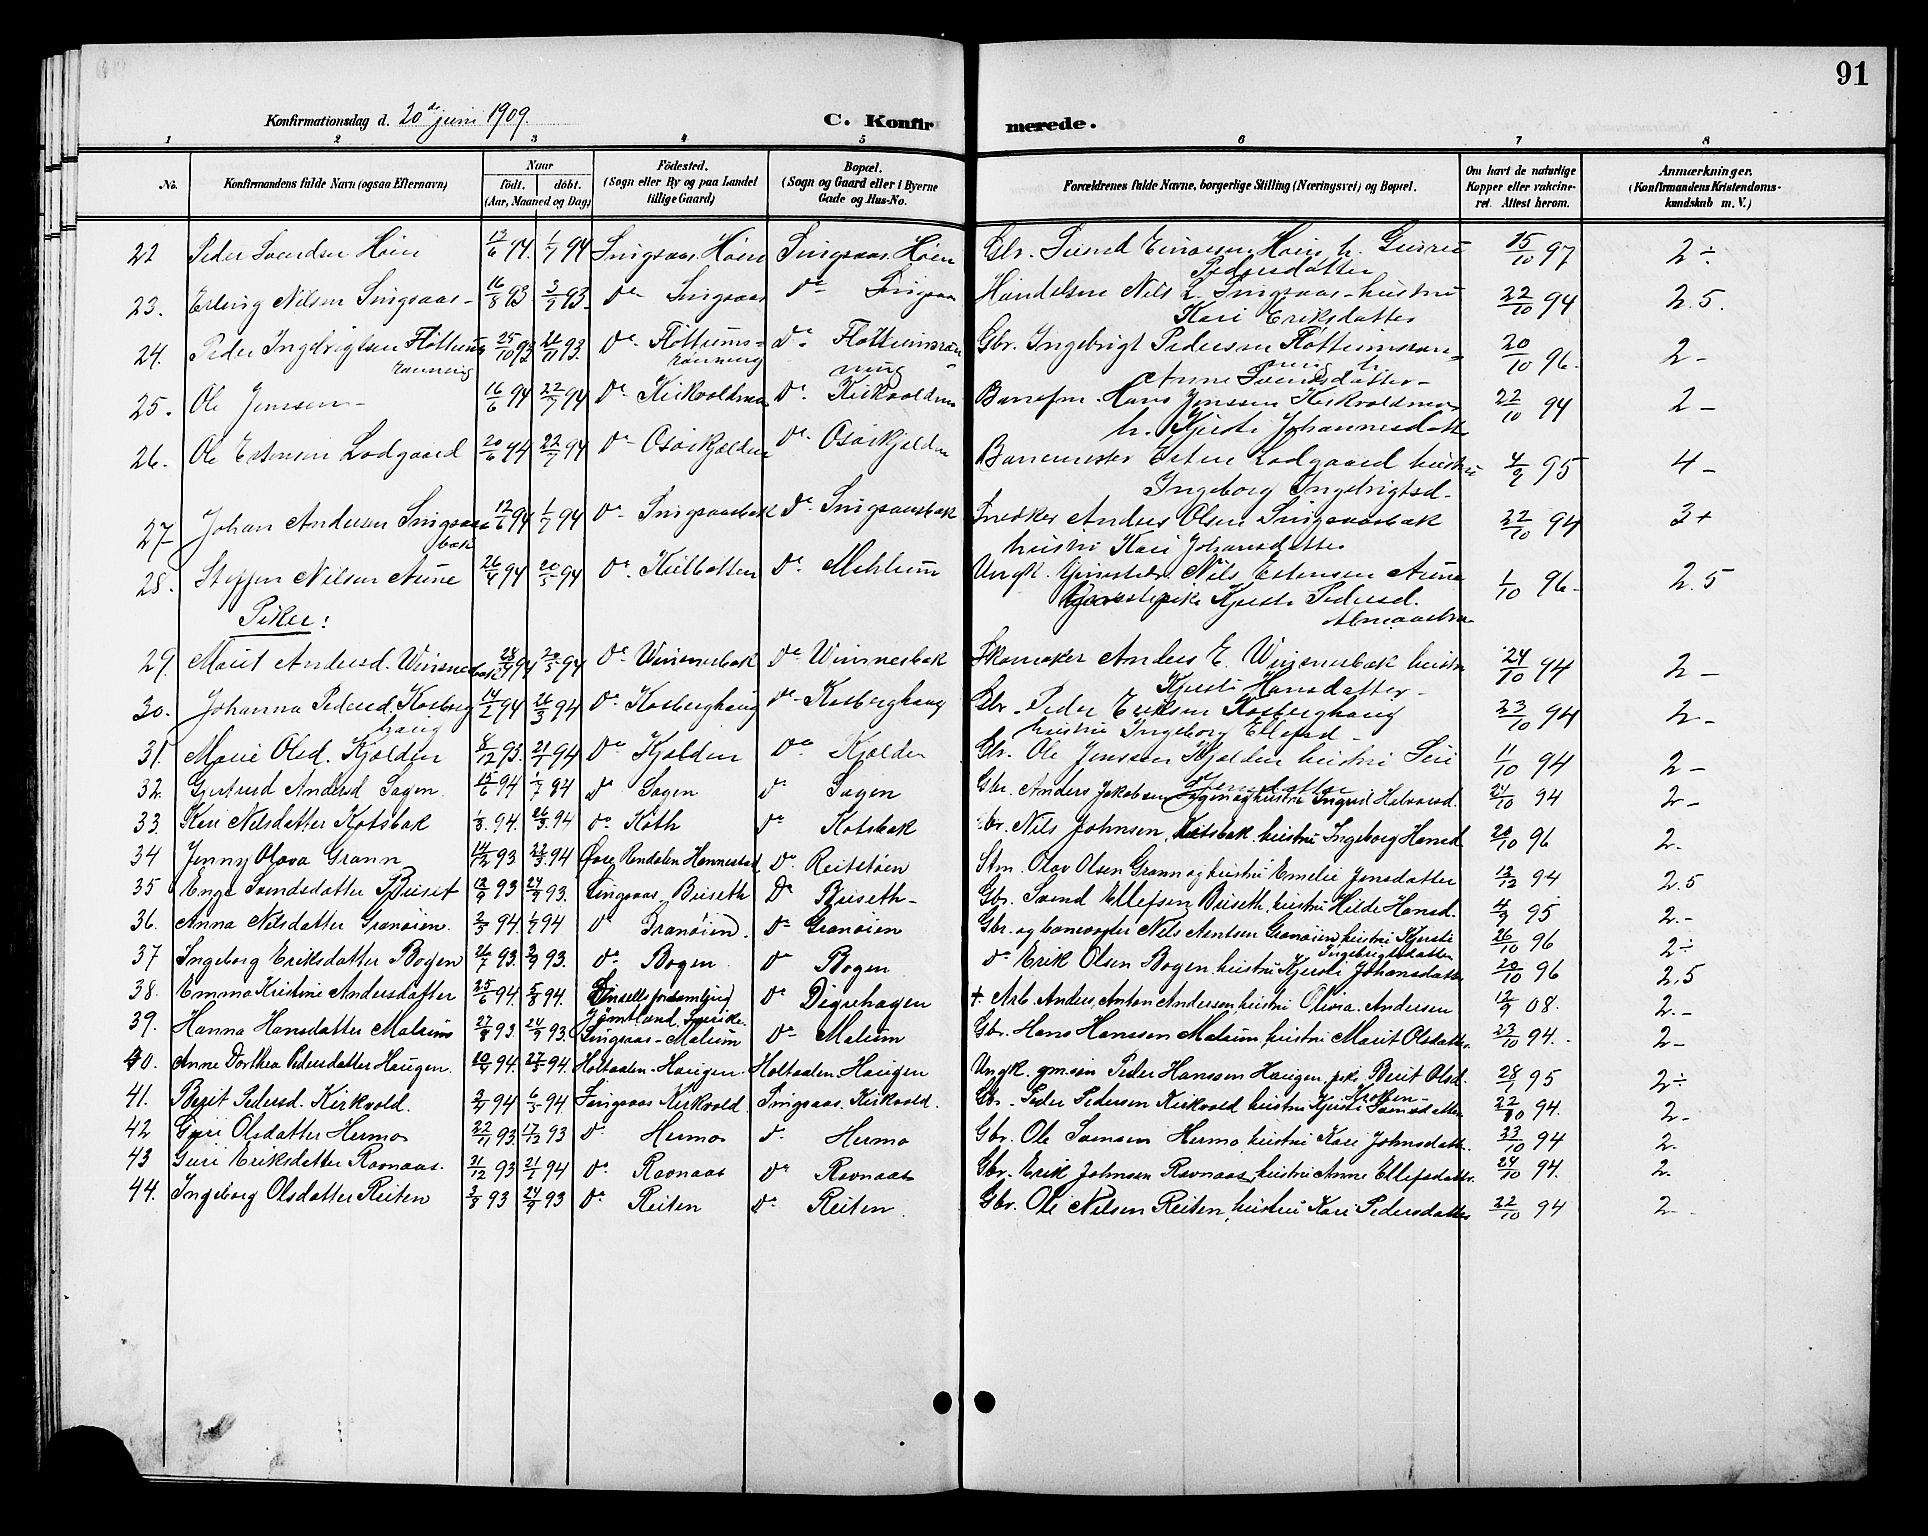 91
Konfirmationsdag d. 20de juni 1909. C. Konfirmerede.
1 2 3 4 5 6 7 8
No. Konfirmandens fulde Navn (ogsaa Efternavn) Naar født. døbt. (Aar, Maaned og Dag) Födested. (Sogn eller By og paa Landet tillige Gaard) Bopæl. (Sogn og Gaard eller i Byerne Gade og Hus-No. Forældrenes fulde Navne, borgerlige Stilling (Næringsvei) og Bopæl. Om havt de naturlige Kopper eller vakcineret. Attest herom. Anmærkninger. (Konfirmandens Kristendomskundskab m. V.)
22 Peder Svendsen Höien 1/7 94 Singsaas Höien Singsaas Höien Gbr. Svend Höien h. Pedersdatter 15/10 97 2 ÷
23. Erling Nilsen Singsaas 16/8 93 3/9 93. do Singsaas do Singsaas Nils Singsaas hustru Kari Eriksdatter 22/10 94 2.5.
24. Peder Ingebrigtsen Flöttumsrönning 25/10 93 26/11 93. do Flöttumsrönning do Flöttumsrönning Gbr. Ingebrigt Pedersen Flöttumsrönning h. Anne Svendsdatter 20/10 96. 2 -
25. Ole Jenssen 16/6 94 22/7 94 do Kirkvoldmo do Kirkvoldmo Hans Jenssen Kirkvoldmo h. Kjersti Johannesdatt. 22/10 94 2 -
26. Ole Estensen Lodgaard 20/6 94 22/7 94 do Osöikjolden do Osöikjolden Banemester Esten Lodgaard hustru Ingeborg Ingebrigtsd. 4/9 95 4 -
27 Johan Andersen Singsaasbak 12/6 94 1/7 94 do Singsaasbak do Singsaasbak Snedker Anders Olsen Singsaasbak hustru Kari Johansdatter 22/10 94 3+
28. Steffen Nilsen Aune 26/4 94 20/5 94 do Kuilbotten do Mehlum Ungk. Nils Estensen Aune Kjersti Pedersd. 1/10 96 2.5
Piker:
29. Marit Andersd. Winsnesbak 28/4 94 20/5 94 do Winsnesbak do Winsnesbak Skomaker Anders E. Winsnesbak hustru Kjersti Hansdatter 24/10 94 2 -
30. Johanna Pedersd. Kosberghaug 14/2 94 26/3 94 do Kosberghaug do Kosberghaug Gbr. Peder Eriksen Kosberghaug hustru Ingeborg Ellefsd. 23/10 94 2 -
31. Marie Olsd. Kjolden 8/12 93. 21/1 94 do Kjolden do Kjolden Gbr. Ole Jenssen Kjolden hustru Siri 11/10 94 2 -
32. Gjertrud Andersd Sagen. 15/6 94 1/7 94 do Sagen do Sagen Gbr. Anders Jakobsen Sagen og hustru Ingrid Halvorsd. 24/10 94 2 -
33. Kari Nilsdatter Kotsbak 1/3. 94. 26/3. 94 do Koth do Kotsbak Gbr. Nils Johnsen Kotsbak, hustru Ingeborg Hansd 20/10 96 2.
34 Jenny Olova Grann 14/12 93. 22/3 94 Övre Rendalen Hannestad do Reitstöen Stm. Olav Olsen Grann og hustru Emelie Jensdatter 12/12 94
35 Enge Svendsdatter Buset 12/9 93 24/9 93. Singsaas, Buseth Do Buseth Gbr. Svend Ellefsen Buseth, hustru Hilde Hansd. 4/9 95 2.5
36. Anna Nilsdatter Granöien. 2/3 94. 1/4 94 do Granöien. do Granöien Gbr. og banevogter Nils Arntsen Granöien, hustru Kjersti Ingebrigtsdatter 26/10 96 2.-
37 Ingeborg Eriksdatter Bogen 26/7 93. 3/9 93. do Bogen do Bogen do Erik Olsen Bogen, hustru Kjersti Johansdatter 20/10 96 2 ÷
38. Emma Kristine Andersdatter 25/6 94. 5/8 94. Jämtland, Sverike. do Digrehagen + Arb. Anders Anton Andersen, hustru Olivia Andersen 12/9 08. 2,5
39. Hanna Hansdatter Malum 27/8 93 24/9 93. Singsaas - Malum do Malum Gbr. Hans Hanssen Malum, hustru Marit Olsdatter. 23/10 94. 2.-
40. Anne Dorthea Pedersdatter Haugen. 10/4 94. 27/5 94. Holtaalen - Haugen. Holtaalen Haugen Ungk. gm.sön Peder Hanssen Haugen, pike Berit Olsd. 28/1 95 2 -
41. Berit Pedersd. Kirkvold. 3/4 94 6/5 94 Singsaas Kirkvold. Singsaas. Kirkvold. Gbr. Peder Pedersen Kirkvold hustru Kjersti Svensdatter 22/10 94. 2 ÷
42 Guri Olsdatter Hermo 22/11 93. 17/12 93 do Hermo do Hermo Gbr. Ole Hermo, hustru Kari Johnsdatter. 23/10 94 2 -
43 Guri Eriksdatter Ravnaas. 21/12 93 21/1 94 do Ravnaas do Ravnaas Gbr. Erik Johnsen Ravnaas, hustru Anne Ellefsdatter. 24/10 94. 2.
44. Ingeborg Olsdatter Reiten 3/8 93 24/9 93 do Reiten do Reiten. Gbr. Ole Nilsen Reiten, hustru Kari Pedersdatter 22/10 94 2